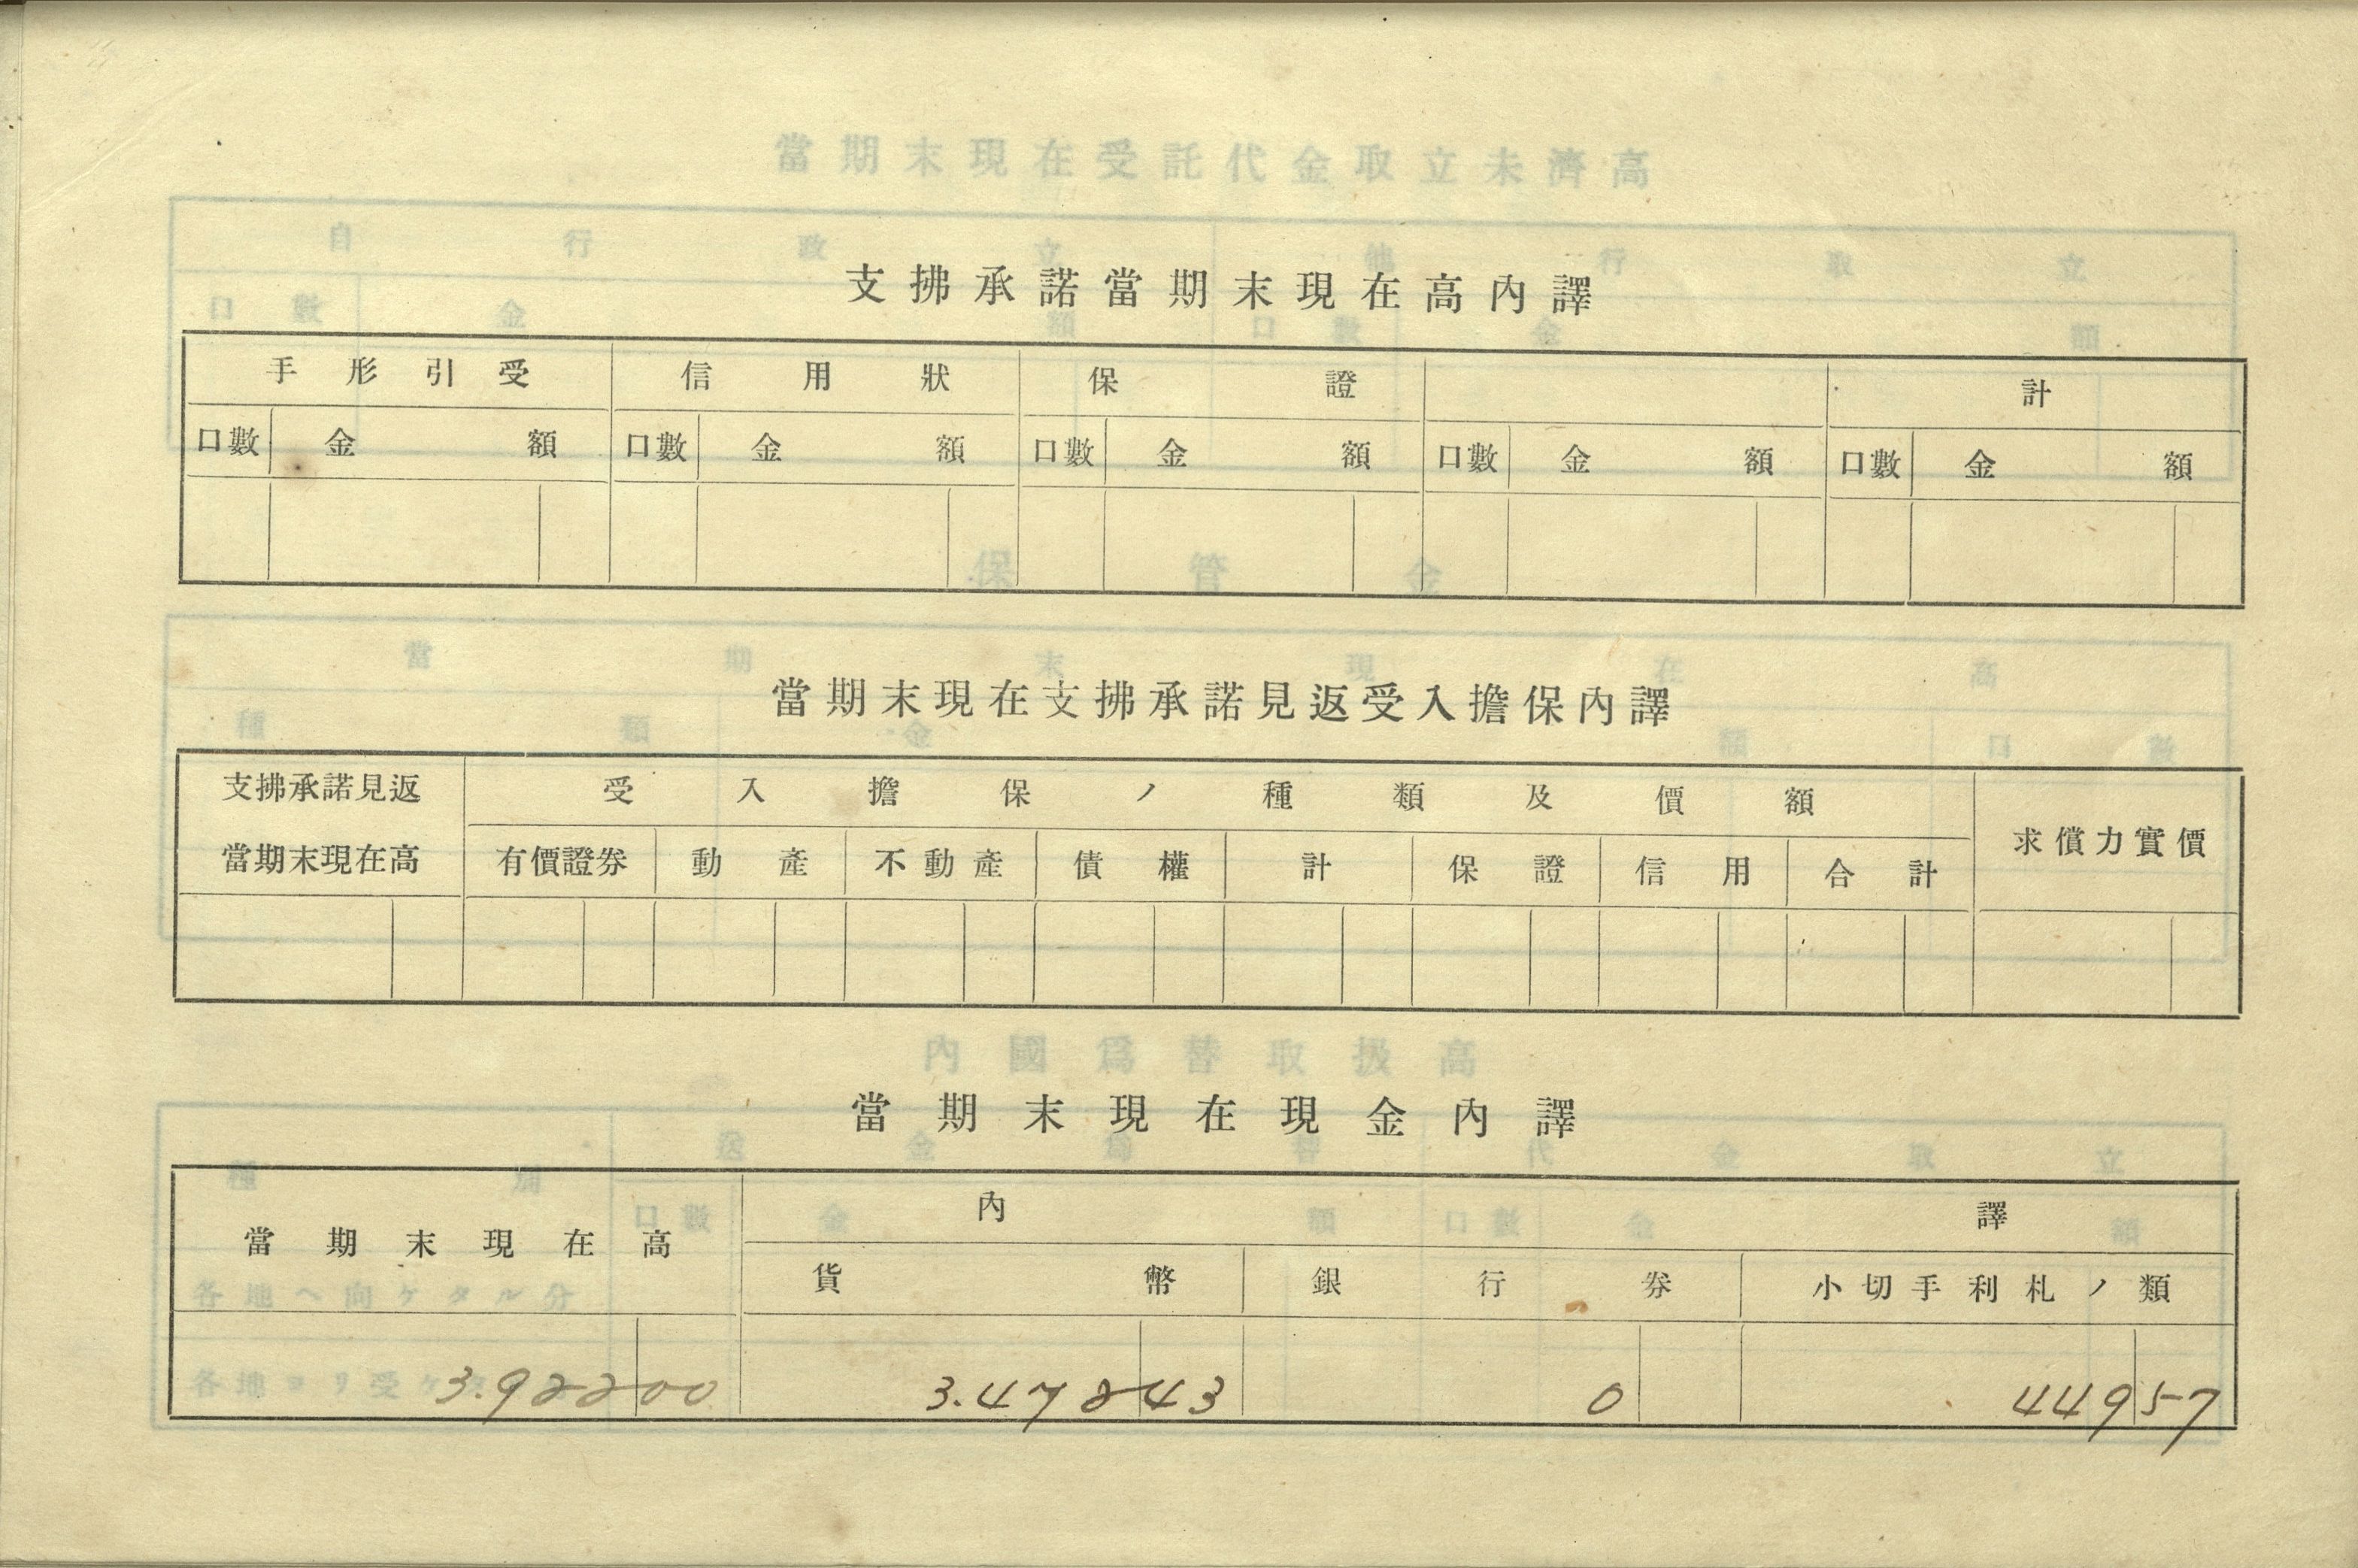 支拂承諾當期末現在高內譯
手形引受 信用狀 保證 計
口數 金額 口數 金額 口數 金額 口數 金額 口數 金額
當期末現在支拂承諾見返受入擔保內譯
支拂承諾見返當期末現在高 受入擔保ノ種類及價額 求償力實價
有價證券 動產 不動產 債權 計 保證 信用 合計
當期末現在現金內譯
當期末現在高 內譯
貨幣 銀行券 小切手利札ノ類
3.922 00 3.472 43 0 449 57